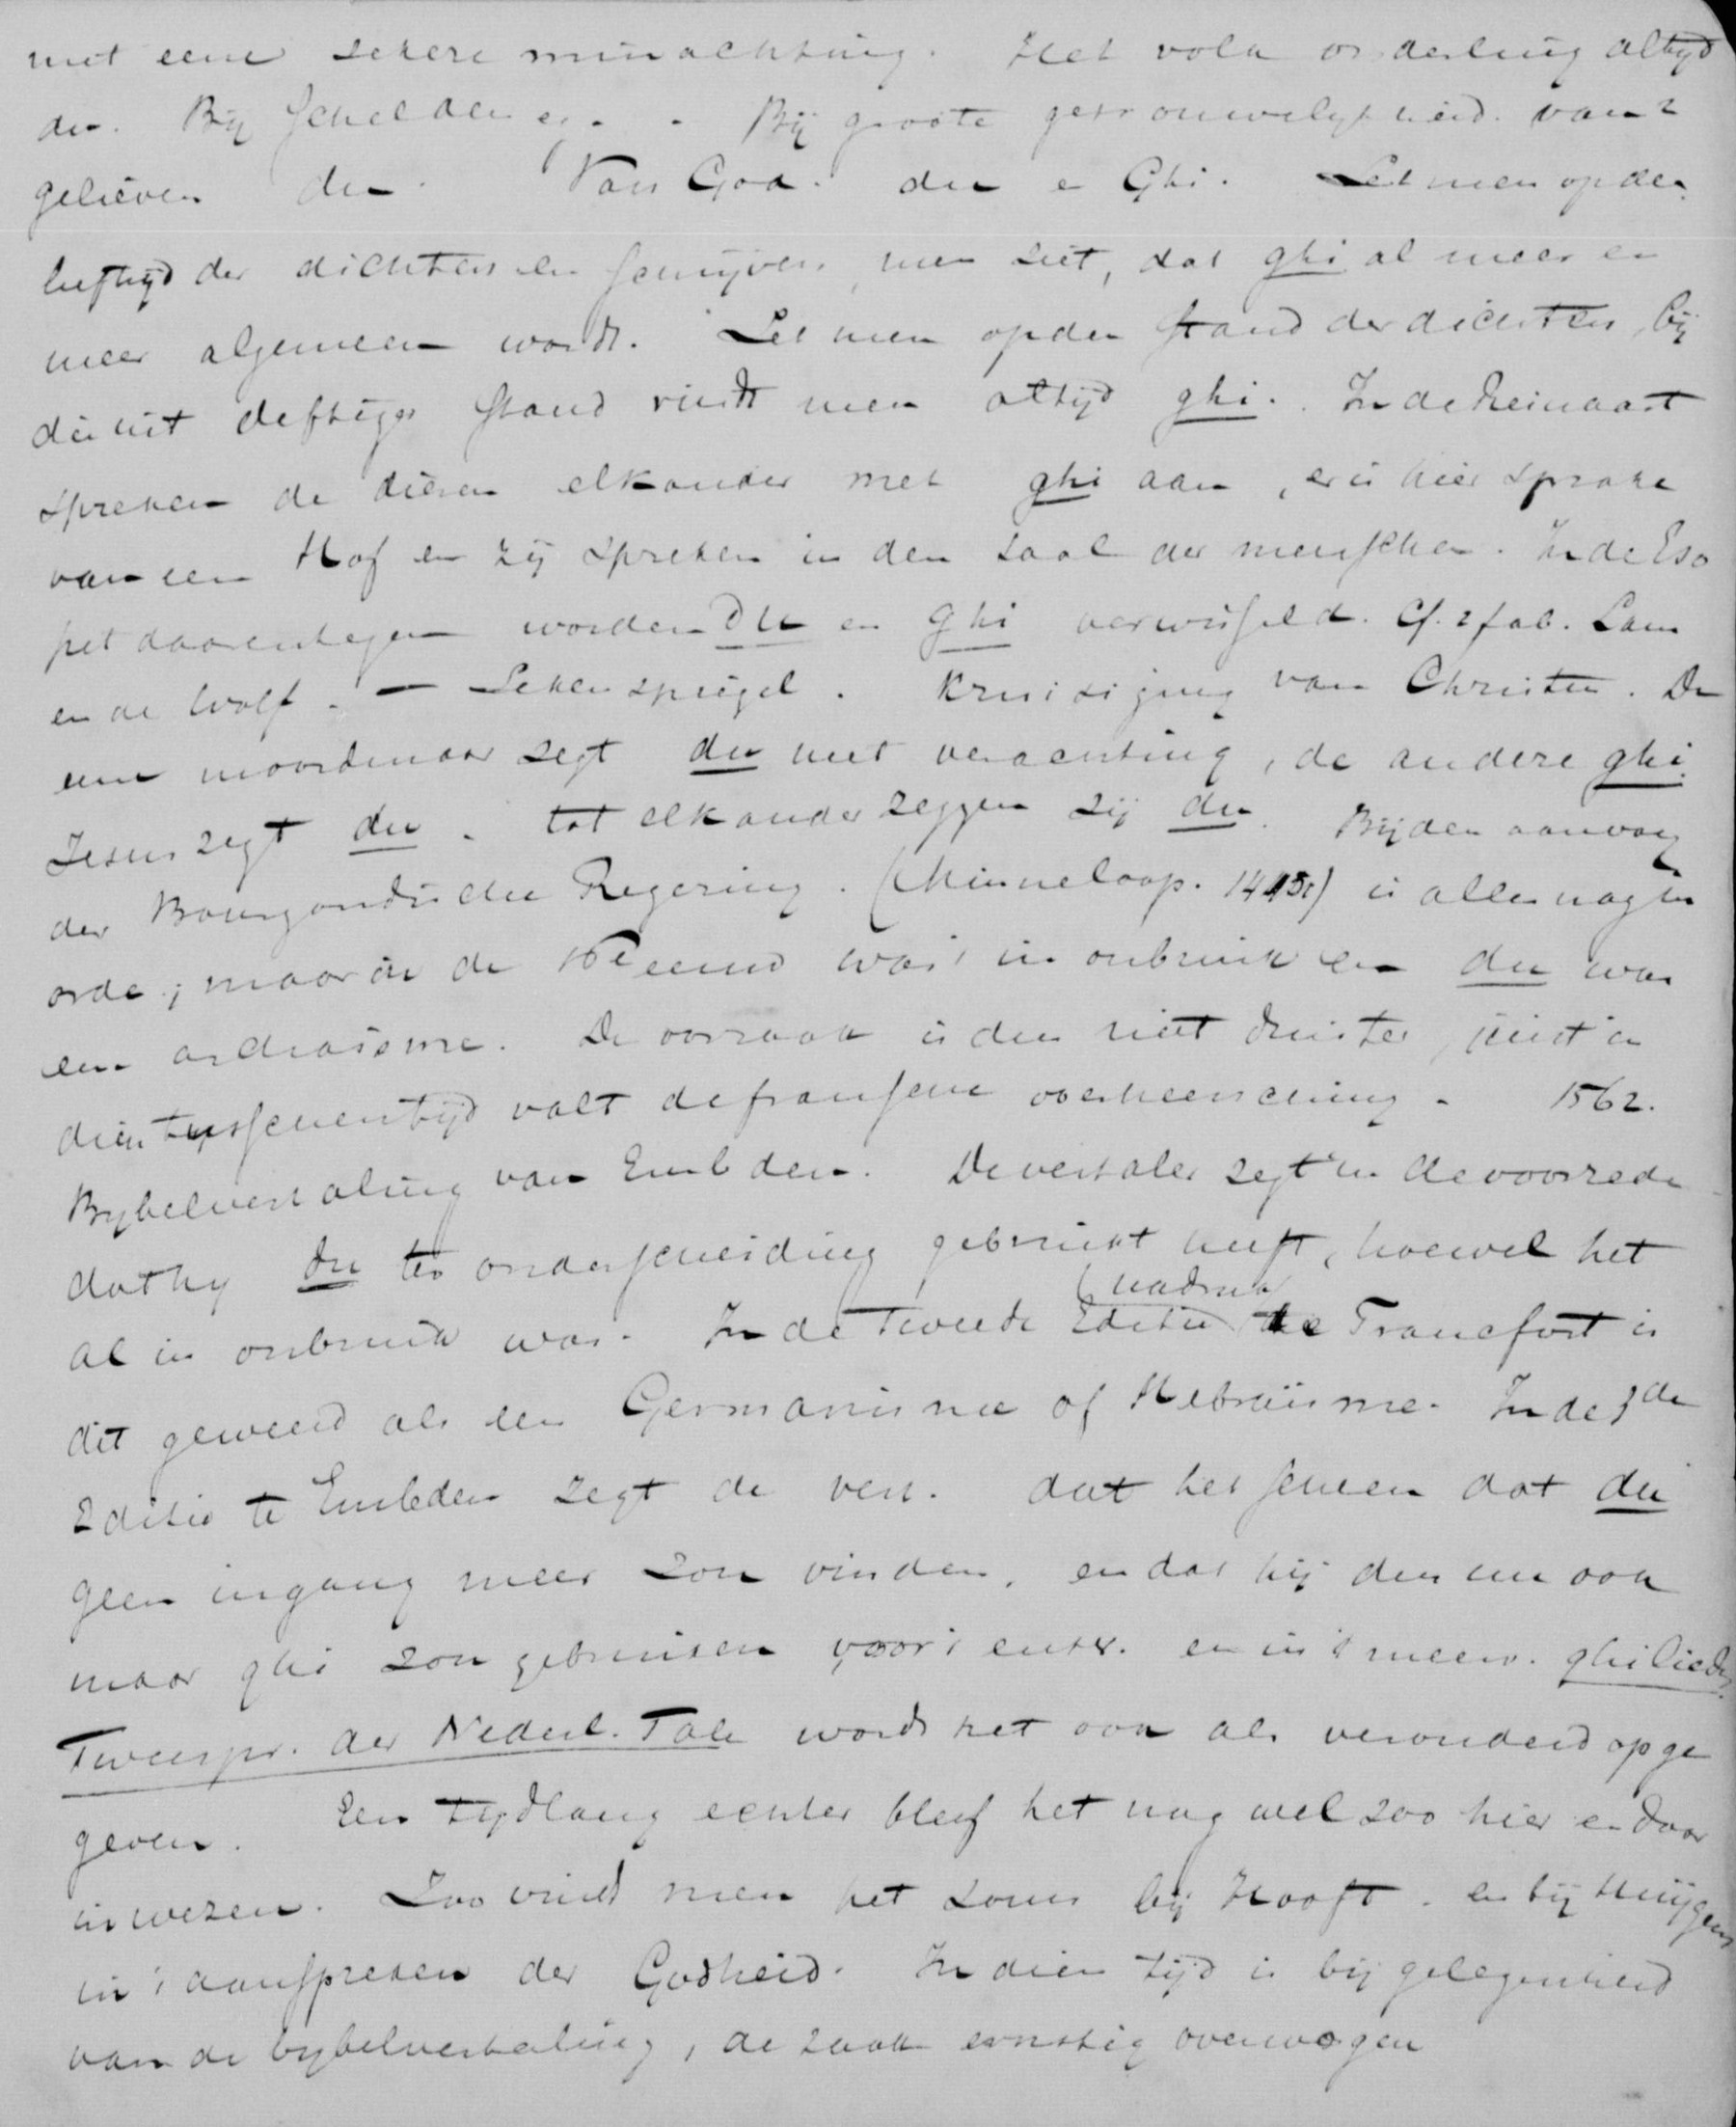 met eene zekere minachting. Het volk onderling altyd
du. Bij schelden ej. - Bij groote gemeenzaamheid. van 2
gelieven du. Van God. du en Ghi. Let men op den
leeftijd der dichters en schrijvers, men ziet, dat ghi al meer en
meer algemeen wordt. Let men op den stand der dichters, bij
die uit deftiger stand vindt men altijd ghi. In de Reinaart
spreken de dieren elkander met ghi aan, er is hier sprake
van een Hof en zij spreken in den taal der menschen. In de Eso
pet daarentegen worden du en ghi verwisseld. Cf. 2 fab. Lam
en de Wolf. - Lekenspiegel. Kruisiging van Christus. De
eene moordenaar zegt du met verachting, de andere ghi
Jesus zegt du. tot elkander zeggen zij du. Bij den aanvang
der Bourgondische Regering. (Minneloop. 14) is alles nog in
orde; maar in de 16e eeuw was 't in onbruik en du was
een archaisme. De oorzaak is dus niet duister, juist in
dien tusschentijd valt de fransche overheersching. 1562.
Bybelvertaling van Embden. De vertaler zegt in de voorrede
dat hy du ter onderscheiding gebruikt heeft, hoewel het
al in onbruik was. In de Tweede Editie (nadruk te Francfort is
dit geweerd als een Germanisme of Hebraïsme. In de 3de
Editie te Embden zegt de vert. dat het scheen dat du
geen ingang meer zou vinden, en dat hij dus nu ook
maar ghi zou gebruiken voor 't enk. en in 't meerv. ghilieden
Tweespr. der Nederl. Tale wordt het ook als verouderd opge
geven. Een tydlang echter bleef het nog wel zoo hier en daar
in wezen. Zoo vindt men het soms bij Hooft. en bij Huijgens
in 't aanspreken der Godheid. In dien tijd is bij gelegenheid
van de bybelvertaling, de zaak ernstig overwogen